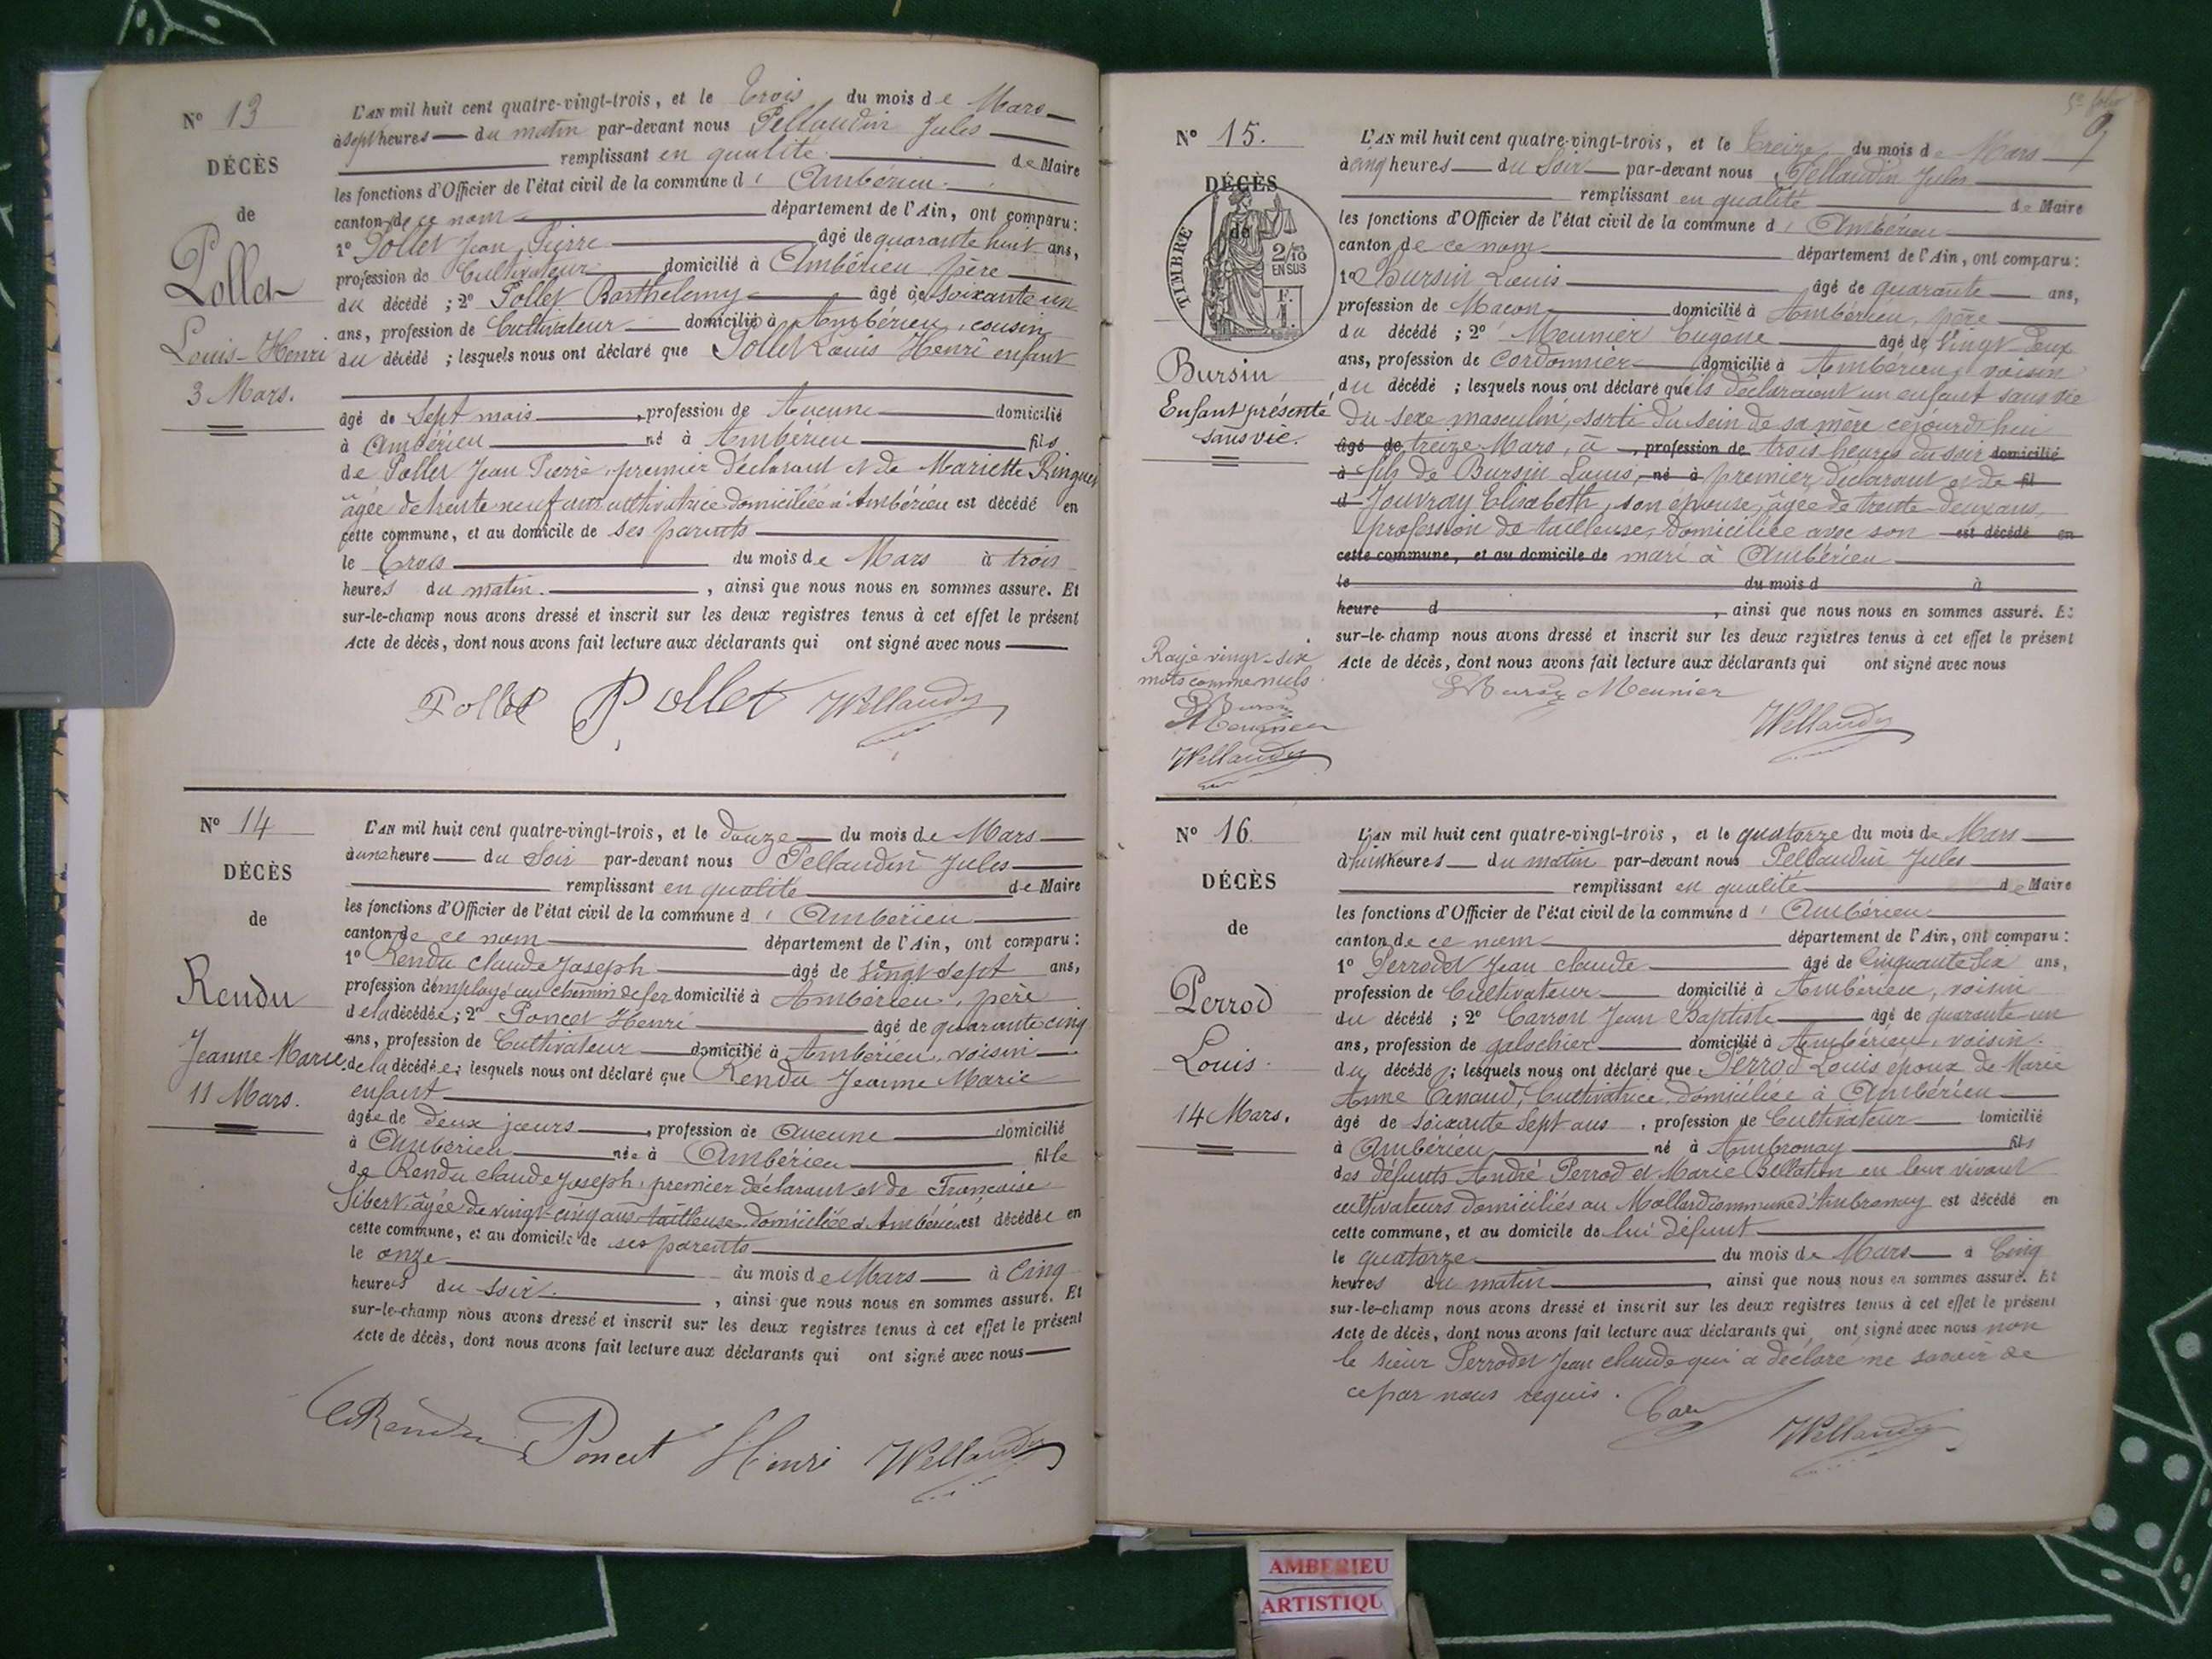 N° 13
DÉCÈS
de
Pollet
Louis-Henri
3 Mars.
L'AN mil huit cent quatre-vingt-trois, et le Trois du mois de Mars
à sept heures du matin par-devant nous Pellaudin Jules
remplissant en qualité de Maire
les fonctions d'Officier de l'état civil de la commune d' Ambérieu
canton de ce nom département de l'Ain, ont comparu:
1° Pollet Jean Pierre âgé de quarante huit ans,
profession de Cultivateur domicilié à Ambérieu père
du décédé ; 2° Pollet Barthelemy âgé de soixante un
ans, profession de Cultivateur domicilié à Ambérieu, cousin
du décédé ; lesquels nous ont déclaré que Pollet Louis Henri enfant
âgé de Sept mois, profession de Aucune domicilié
à Ambérieu né à Ambérieu fils
de Pollet Jean Pierre, premier déclarant et de Mariette Ringuet
âgée de trente neuf ans cultivatrice domiciliée à Ambérieu est décédé en
cette commune, et au domicile de ses parents
le Trois du mois de Mars à trois
heures du matin, ainsi que nous nous en sommes assuré. Et
sur-le-champ nous avons dressé et inscrit sur les deux registres tenus à cet effet le présent
Acte de décès, dont nous avons fait lecture aux déclarants qui ont signé avec nous
Pollet Pollet JPellaudin
N° 14
DÉCÈS
de
Rendu
Jeanne Marie
11 Mars.
L'AN mil huit cent quatre-vingt-trois, et le douze du mois de Mars
à une heure du Soir par-devant nous Pellaudin Jules
remplissant en qualité de Maire
les fonctions d'Officier de l'état civil de la commune d' Ambérieu
canton de ce nom département de l'Ain, ont comparu:
1° Rendu Claude Joseph âgé de vingt sept ans,
profession d'employé au chemin de fer domicilié à Ambérieu, père
de la décédée; 2° Poncet Henri âgé de quarante cinq
ans, profession de Cultivateur domicilié à Ambérieu, voisin
de la décédée; lesquels nous ont déclaré que Rendu Jeanne Marie
enfant
âgée de deux jours, profession de Aucune domicilié
à Ambérieu née à Ambérieu fille
de Rendu Claude Joseph, premier déclarant et de Françoise
Sibert âgée de vingt-cinq ans tailleuse domiciliée à Ambérieu est décédée en
cette commune, et au domicile de ses parents
le onze du mois de Mars à Cinq
heures du soir, ainsi que nous nous en sommes assuré. Et
sur-le-champ nous avons dressé et inscrit sur les deux registres tenus à cet effet le présent
Acte de décès, dont nous avons fait lecture aux déclarants qui ont signé avec nous
CRendu Poncet Henri JPellaudin
5e folio
9
N° 15.
DÉCÈS
de
TIMBRE
2/10
EN SUS
F.
1.
Bursin
Enfant présenté
sans vie.
L'AN mil huit cent quatre-vingt-trois, et le Treize du mois de Mars
à cinq heures du Soir par-devant nous Pellaudin Jules
remplissant en qualité de Maire
les fonctions d'Officier de l'état civil de la commune d' Ambérieu
canton de ce nom département de l'Ain, ont comparu:
1° Bursin Louis âgé de quarante ans,
profession de Maçon domicilié à Ambérieu, père
du décédé ; 2° Meunier Eugene âgé de vingt deux
ans, profession de Cordonnier domicilié à Ambérieu, voisin
du décédé ; lesquels nous ont déclaré qu'ils déclaraient un enfant sans vie
du sexe masculin, sorti du sein de sa mère cejourd'hui
âgé de treize Mars, à profession de trois heures du soir domicilié
à fils de Bursin Louis, né à premier déclarant et de fil
d Jouvray Elisabeth, son épouse, âgée de trente-deux ans,
profession de tailleuse, domiciliée avec son est décédé en
cette commune, et au domicile de mari à Ambérieu
le du mois d à
heure d, ainsi que nous nous en sommes assuré. Et
sur-le-champ nous avons dressé et inscrit sur les deux registres tenus à cet effet le présent
Acte de décès, dont nous avons fait lecture aux déclarants qui ont signé avec nous
Rayé vingt-six
mots comme nuls.
Bursin
Meunier
JPellaudin
Bursin Meunier
JPellaudin
N° 16.
DÉCÈS
de
Perrod
Louis
14 Mars.
L'AN mil huit cent quatre-vingt-trois, et le quatorze du mois de Mars
à huit heures du matin par-devant nous Pellaudin Jules
remplissant en qualité de Maire
les fonctions d'Officier de l'état civil de la commune d' Ambérieu
canton de ce nom département de l'Ain, ont comparu:
1° Perrodet Jean Claude âgé de Cinquante six ans,
profession de Cultivateur domicilié à Ambérieu, voisin
du décédé ; 2° Carron Jean Baptiste âgé de quarante un
ans, profession de galochier domicilié à Ambérieu, voisin.
du décédé ; lesquels nous ont déclaré que Perrod Louis époux de Marie
Anne Tenaud, Cultivatrice, domiciliée à Ambérieu
âgé de soixante Sept ans, profession de Cultivateur domicilié
à Ambérieu, né à Ambronay fils
des défunts André Perrod et Marie Bellaton en leur vivant
cultivateurs domiciliés au Mollard commune d'Ambronay est décédé en
cette commune, et au domicile de lui défunt
le quatorze du mois de Mars à Cinq
heures du matin, ainsi que nous nous en sommes assuré. Et
sur-le-champ nous avons dressé et inscrit sur les deux registres tenus à cet effet le présent
Acte de décès, dont nous avons fait lecture aux déclarants qui ont signé avec nous non
le sieur Perrodet Jean Claude qui a déclaré ne savoir de
ce par nous requis.
Car JPellaudin
AMBERIEU
ARTISTIQU